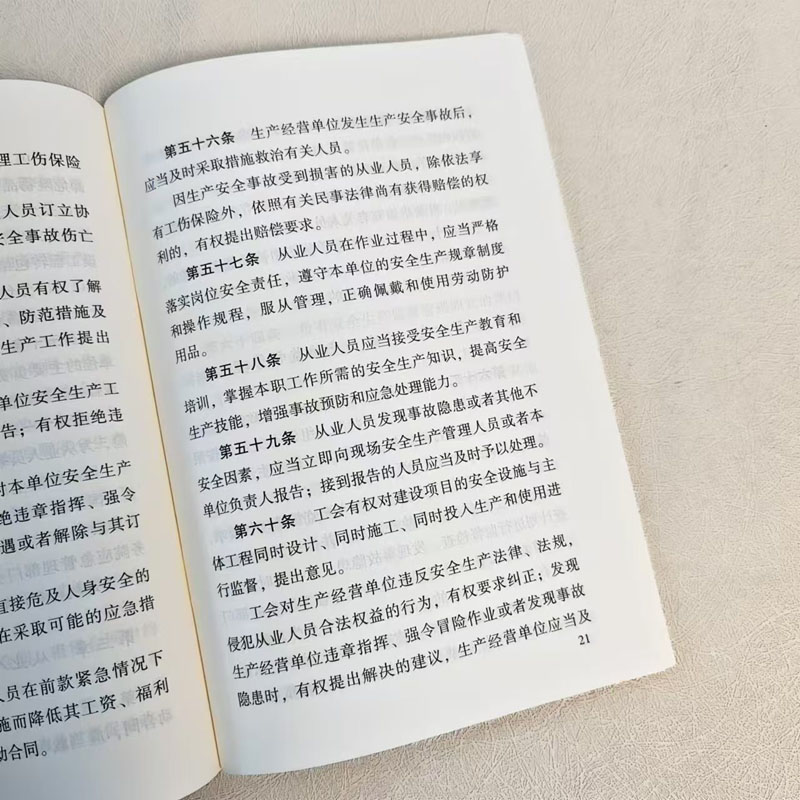 理工伤保险
人员订立协
全事故伤亡
人员有权了解
、防范措施及
生产工作提出
单位安全生产工
告；有权拒绝违
对本单位安全生产
绝违章指挥、强令
遇或者解除与其订
直接危及人身安全的
在采取可能的应急措
人员在前款紧急情况下
施而降低其工资、福利
动合同。
第五十六条 生产经营单位发生生产安全事故后，
应当及时采取措施救治有关人员。
因生产安全事故受到损害的从业人员，除依法享
有工伤保险外，依照有关民事法律尚有获得赔偿的权
利的，有权提出赔偿要求。
第五十七条 从业人员在作业过程中，应当严格
落实岗位安全责任，遵守本单位的安全生产规章制度
和操作规程，服从管理，正确佩戴和使用劳动防护
用品。
第五十八条 从业人员应当接受安全生产教育和
培训，掌握本职工作所需的安全生产知识，提高安全
生产技能，增强事故预防和应急处理能力。
第五十九条 从业人员发现事故隐患或者其他不
安全因素，应当立即向现场安全生产管理人员或者本
单位负责人报告；接到报告的人员应当及时予以处理。
第六十条 工会有权对建设项目的安全设施与主
体工程同时设计、同时施工、同时投入生产和使用进
行监督，提出意见。
工会对生产经营单位违反安全生产法律、法规，
侵犯从业人员合法权益的行为，有权要求纠正；发现
生产经营单位违章指挥、强令冒险作业或者发现事故
隐患时，有权提出解决的建议，生产经营单位应当及
21